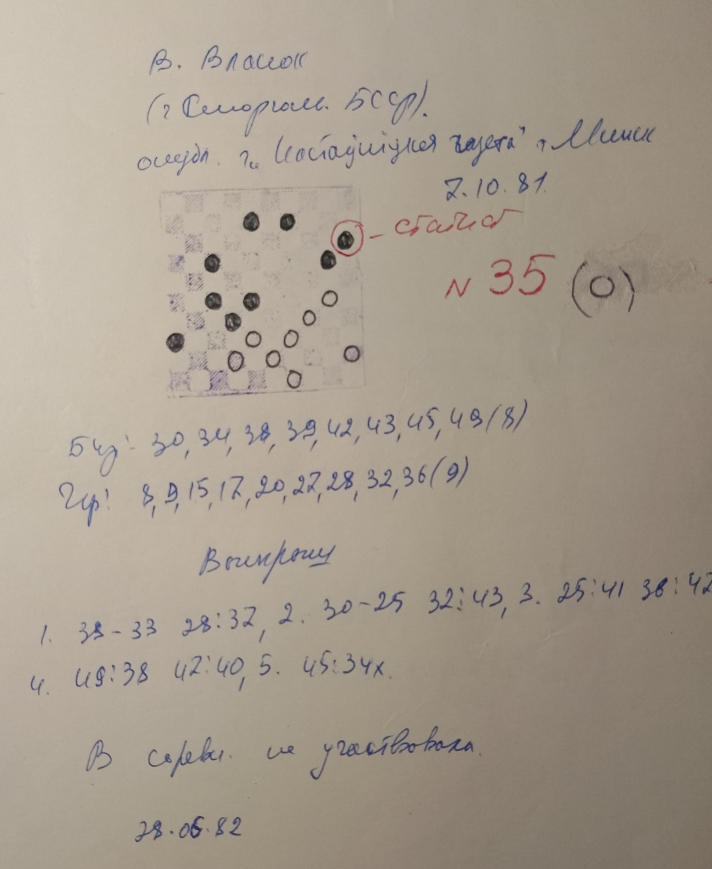 В. Власюк
(г. Сморгонь БССР).
опубл. г. „Настаўніцкая газета" г. Минск
7.10.81.
- статист
N 35 (0)
Бел: 30, 34, 38, 39, 42, 43, 45, 49 (8)
Чер: 8, 9, 15, 17, 20, 27, 28, 32, 36 (9)
Выигрыш
1. 38-33 28:37, 2. 30-25 32:43, 3. 25:41 36:47
4. 49:38 47:40, 5. 45:34x.
В соревн. не участвовала.
28.06.82